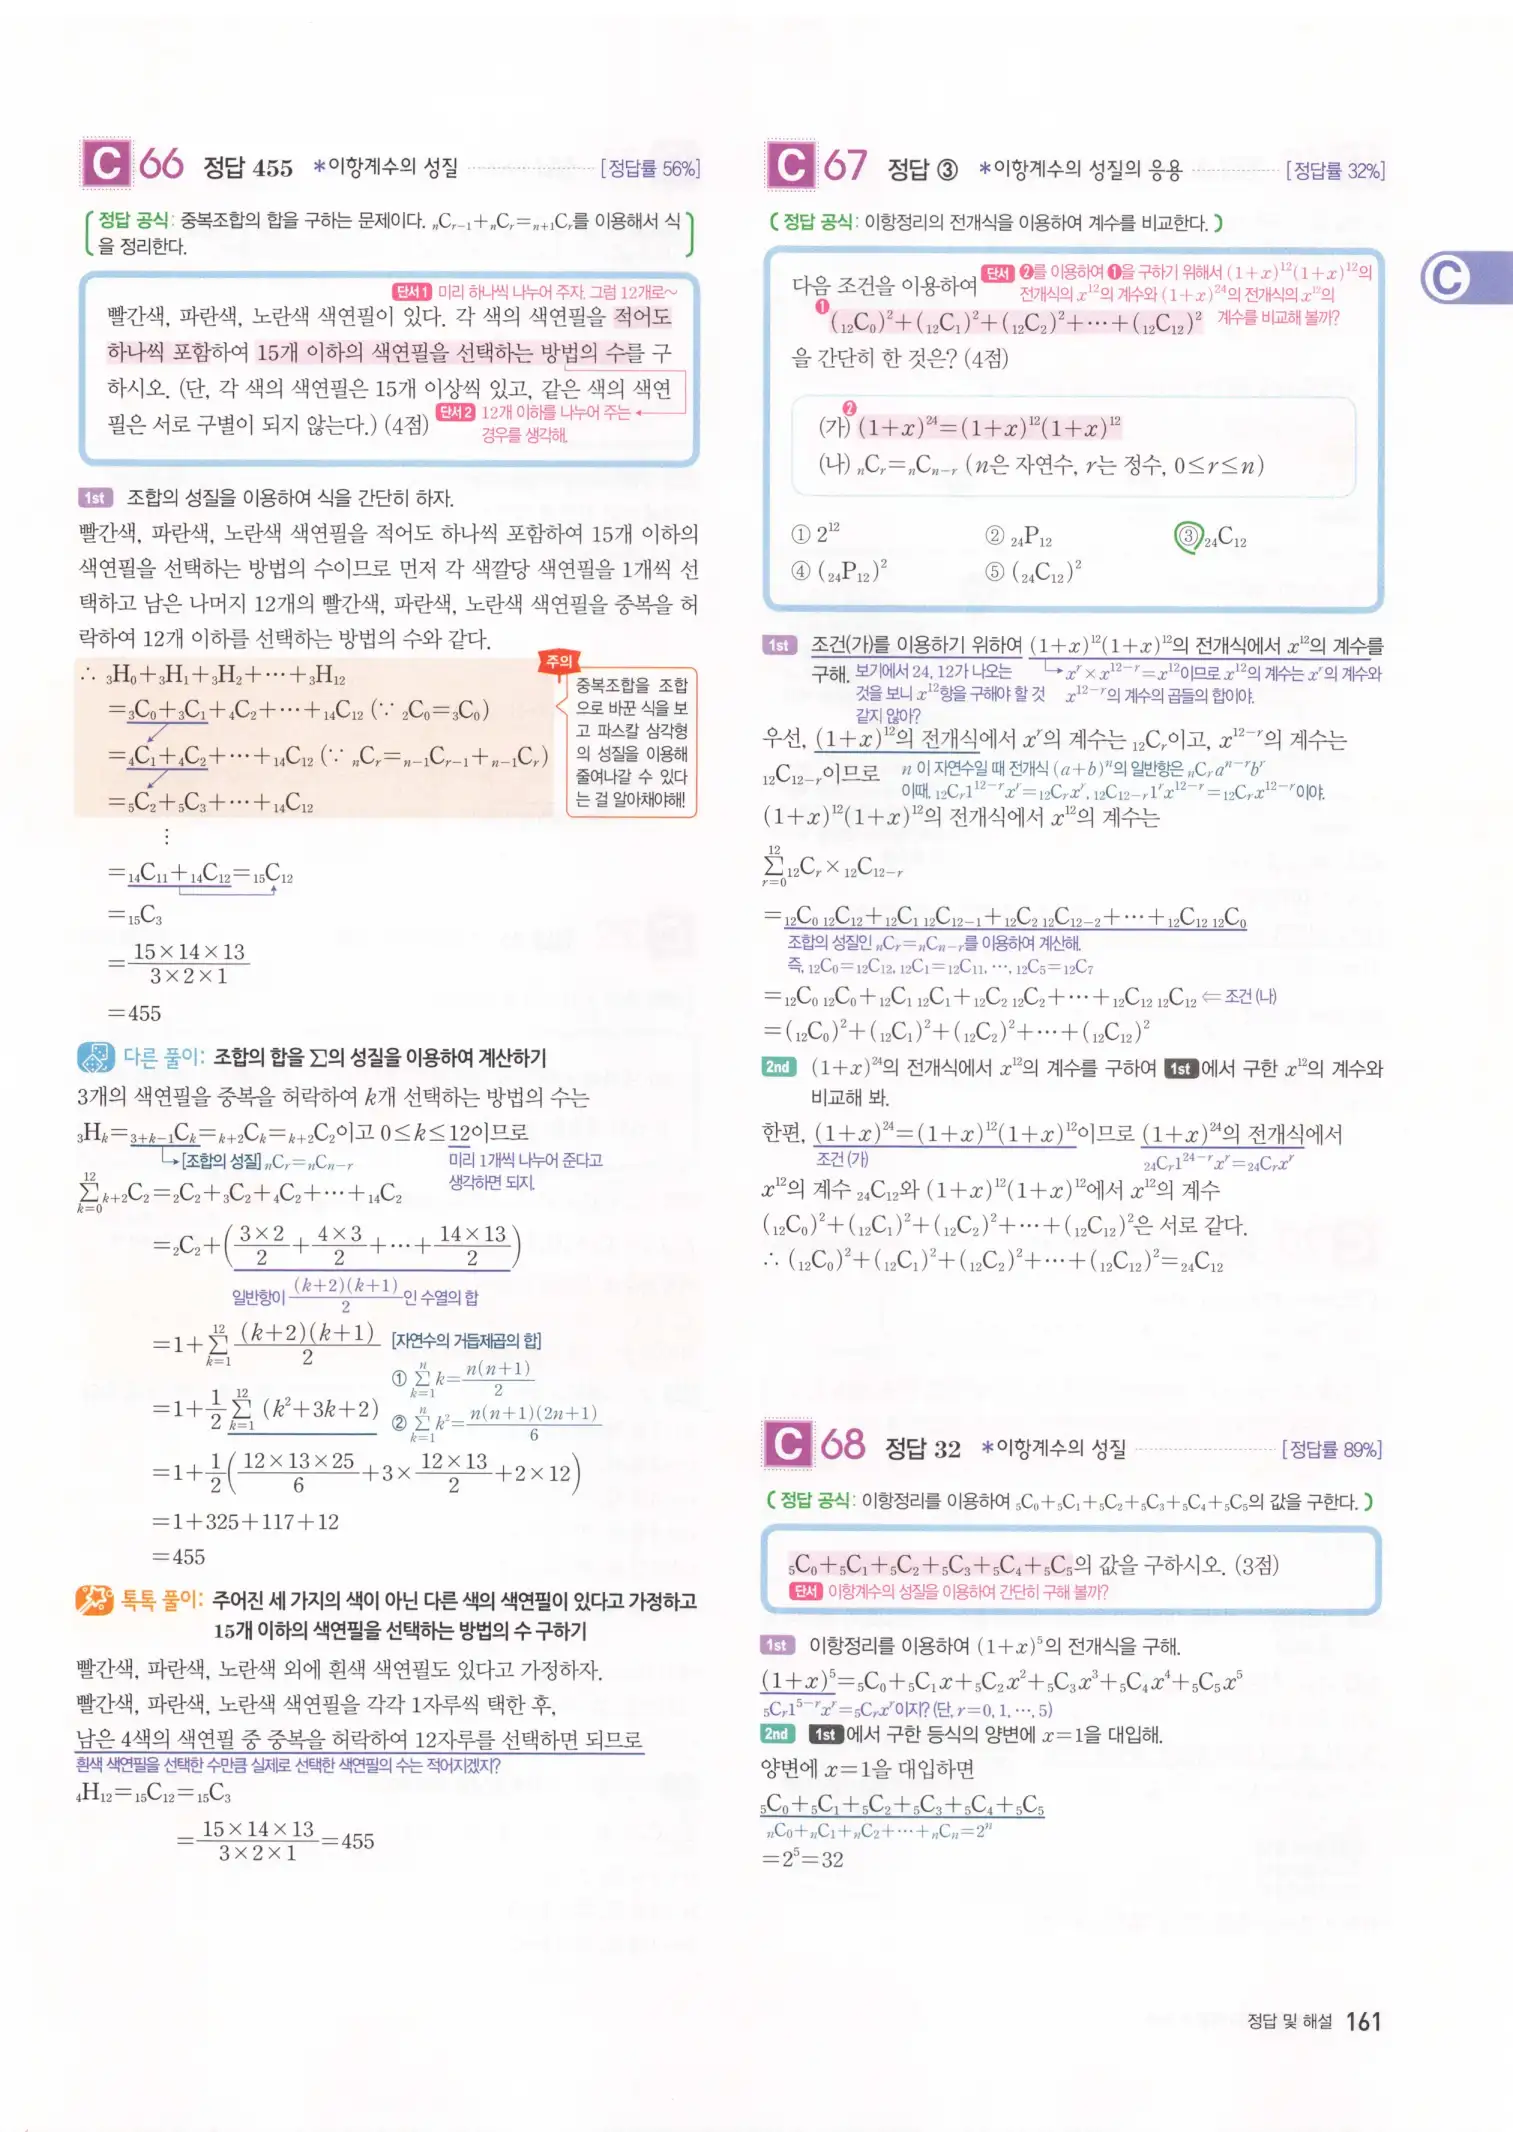 C 66 정답 455 *이항계수의 성질 [정답률 56%]
정답 공식: 중복조합의 합을 구하는 문제이다. ₙCᵣ₋₁+ₙCᵣ=ₙ₊₁Cᵣ를 이용해서 식
을 정리한다.
단서1 미리 하나씩 나누어 주자. 그럼 12개로~
빨간색, 파란색, 노란색 색연필이 있다. 각 색의 색연필을 적어도
하나씩 포함하여 15개 이하의 색연필을 선택하는 방법의 수를 구
하시오. (단, 각 색의 색연필은 15개 이상씩 있고, 같은 색의 색연
필은 서로 구별이 되지 않는다.) (4점) 단서2 12개 이하를 나누어 주는
경우를 생각해.
1st 조합의 성질을 이용하여 식을 간단히 하자.
빨간색, 파란색, 노란색 색연필을 적어도 하나씩 포함하여 15개 이하의
색연필을 선택하는 방법의 수이므로 먼저 각 색깔당 색연필을 1개씩 선
택하고 남은 나머지 12개의 빨간색, 파란색, 노란색 색연필을 중복을 허
락하여 12개 이하를 선택하는 방법의 수와 같다.
∴ ₃H₀+₃H₁+₃H₂+⋯+₃H₁₂
=₃C₀+₃C₁+₄C₂+⋯+₁₄C₁₂ (∵ ₂C₀=₃C₀)
=₄C₁+₄C₂+⋯+₁₄C₁₂ (∵ ₙCᵣ=ₙ₋₁Cᵣ₋₁+ₙ₋₁Cᵣ)
=₅C₂+₅C₃+⋯+₁₄C₁₂
주의
중복조합을 조합
으로 바꾼 식을 보
고 파스칼 삼각형
의 성질을 이용해
줄여나갈 수 있다
는 걸 알아채야해!
⋮
=₁₄C₁₁+₁₄C₁₂=₁₅C₁₂
=₁₅C₃
=(15×14×13)/(3×2×1)
=455
다른 풀이: 조합의 합을 ∑의 성질을 이용하여 계산하기
3개의 색연필을 중복을 허락하여 k개 선택하는 방법의 수는
₃Hₖ=₃₊ₖ₋₁Cₖ=ₖ₊₂Cₖ=ₖ₊₂C₂이고 0≤k≤12이므로
[조합의 성질] ₙCᵣ=ₙCₙ₋ᵣ 미리 1개씩 나누어 준다고
생각하면 되지.
∑(k=0→12) ₖ₊₂C₂=₂C₂+₃C₂+₄C₂+⋯+₁₄C₂
=₂C₂+((3×2)/2+(4×3)/2+⋯+(14×13)/2)
일반항이 (k+2)(k+1)/2인 수열의 합
=1+∑(k=1→12) (k+2)(k+1)/2 [자연수의 거듭제곱의 합]
① ∑(k=1→n) k=n(n+1)/2
=1+1/2 ∑(k=1→12) (k²+3k+2)
② ∑(k=1→n) k²=n(n+1)(2n+1)/6
=1+1/2((12×13×25)/6+3×(12×13)/2+2×12)
=1+325+117+12
=455
톡톡 풀이: 주어진 세 가지의 색이 아닌 다른 색의 색연필이 있다고 가정하고
15개 이하의 색연필을 선택하는 방법의 수 구하기
빨간색, 파란색, 노란색 외에 흰색 색연필도 있다고 가정하자.
빨간색, 파란색, 노란색 색연필을 각각 1자루씩 택한 후,
남은 4색의 색연필 중 중복을 허락하여 12자루를 선택하면 되므로
흰색 색연필을 선택한 수만큼 실제로 선택한 색연필의 수는 적어지겠지?
₄H₁₂=₁₅C₁₂=₁₅C₃
=(15×14×13)/(3×2×1)=455
C 67 정답 ③ *이항계수의 성질의 응용 [정답률 32%]
정답 공식: 이항정리의 전개식을 이용하여 계수를 비교한다.
다음 조건을 이용하여 단서 ❷를 이용하여 ❶을 구하기 위해서 (1+x)¹²(1+x)¹²의
전개식의 x¹²의 계수와 (1+x)²⁴의 전개식의 x¹²의
❶ (₁₂C₀)²+(₁₂C₁)²+(₁₂C₂)²+⋯+(₁₂C₁₂)² 계수를 비교해 볼까?
을 간단히 한 것은? (4점)
❷
(가) (1+x)²⁴=(1+x)¹²(1+x)¹²
(나) ₙCᵣ=ₙCₙ₋ᵣ (n은 자연수, r는 정수, 0≤r≤n)
① 2¹² ② ₂₄P₁₂ ③ ₂₄C₁₂
④ (₂₄P₁₂)² ⑤ (₂₄C₁₂)²
1st 조건(가)를 이용하기 위하여 (1+x)¹²(1+x)¹²의 전개식에서 x¹²의 계수를
구해. 보기에서 24, 12가 나오는
것을 보니 x¹²항을 구해야 할 것
같지 않아?
xʳ×x¹²⁻ʳ=x¹²이므로 x¹²의 계수는 xʳ의 계수와
x¹²⁻ʳ의 계수의 곱들의 합이야.
우선, (1+x)¹²의 전개식에서 xʳ의 계수는 ₁₂Cᵣ이고, x¹²⁻ʳ의 계수는
₁₂C₁₂₋ᵣ이므로 n이 자연수일 때 전개식 (a+b)ⁿ의 일반항은 ₙCᵣaⁿ⁻ʳbʳ
이때, ₁₂Cᵣ1¹²⁻ʳxʳ=₁₂Cᵣxʳ, ₁₂C₁₂₋ᵣ1ʳx¹²⁻ʳ=₁₂Cᵣx¹²⁻ʳ이야.
(1+x)¹²(1+x)¹²의 전개식에서 x¹²의 계수는
∑(r=0→12) ₁₂Cᵣ×₁₂C₁₂₋ᵣ
=₁₂C₀ ₁₂C₁₂+₁₂C₁ ₁₂C₁₂₋₁+₁₂C₂ ₁₂C₁₂₋₂+⋯+₁₂C₁₂ ₁₂C₀
조합의 성질인 ₙCᵣ=ₙCₙ₋ᵣ를 이용하여 계산해.
즉, ₁₂C₀=₁₂C₁₂, ₁₂C₁=₁₂C₁₁, ⋯, ₁₂C₅=₁₂C₇
=₁₂C₀ ₁₂C₀+₁₂C₁ ₁₂C₁+₁₂C₂ ₁₂C₂+⋯+₁₂C₁₂ ₁₂C₁₂ ⇐ 조건 (나)
=(₁₂C₀)²+(₁₂C₁)²+(₁₂C₂)²+⋯+(₁₂C₁₂)²
2nd (1+x)²⁴의 전개식에서 x¹²의 계수를 구하여 1st에서 구한 x¹²의 계수와
비교해 봐.
한편, (1+x)²⁴=(1+x)¹²(1+x)¹²이므로 (1+x)²⁴의 전개식에서
조건 (가) ₂₄Cᵣ1²⁴⁻ʳxʳ=₂₄Cᵣxʳ
x¹²의 계수 ₂₄C₁₂와 (1+x)¹²(1+x)¹²에서 x¹²의 계수
(₁₂C₀)²+(₁₂C₁)²+(₁₂C₂)²+⋯+(₁₂C₁₂)²은 서로 같다.
∴ (₁₂C₀)²+(₁₂C₁)²+(₁₂C₂)²+⋯+(₁₂C₁₂)²=₂₄C₁₂
C 68 정답 32 *이항계수의 성질 [정답률 89%]
정답 공식: 이항정리를 이용하여 ₅C₀+₅C₁+₅C₂+₅C₃+₅C₄+₅C₅의 값을 구한다.
₅C₀+₅C₁+₅C₂+₅C₃+₅C₄+₅C₅의 값을 구하시오. (3점)
단서 이항계수의 성질을 이용하여 간단히 구해 볼까?
1st 이항정리를 이용하여 (1+x)⁵의 전개식을 구해.
(1+x)⁵=₅C₀+₅C₁x+₅C₂x²+₅C₃x³+₅C₄x⁴+₅C₅x⁵
₅Cᵣ1⁵⁻ʳxʳ=₅Cᵣxʳ이지? (단, r=0, 1, ⋯, 5)
2nd 1st에서 구한 등식의 양변에 x=1을 대입해.
양변에 x=1을 대입하면
₅C₀+₅C₁+₅C₂+₅C₃+₅C₄+₅C₅
ₙC₀+ₙC₁+ₙC₂+⋯+ₙCₙ=2ⁿ
=2⁵=32
C
정답 및 해설 161